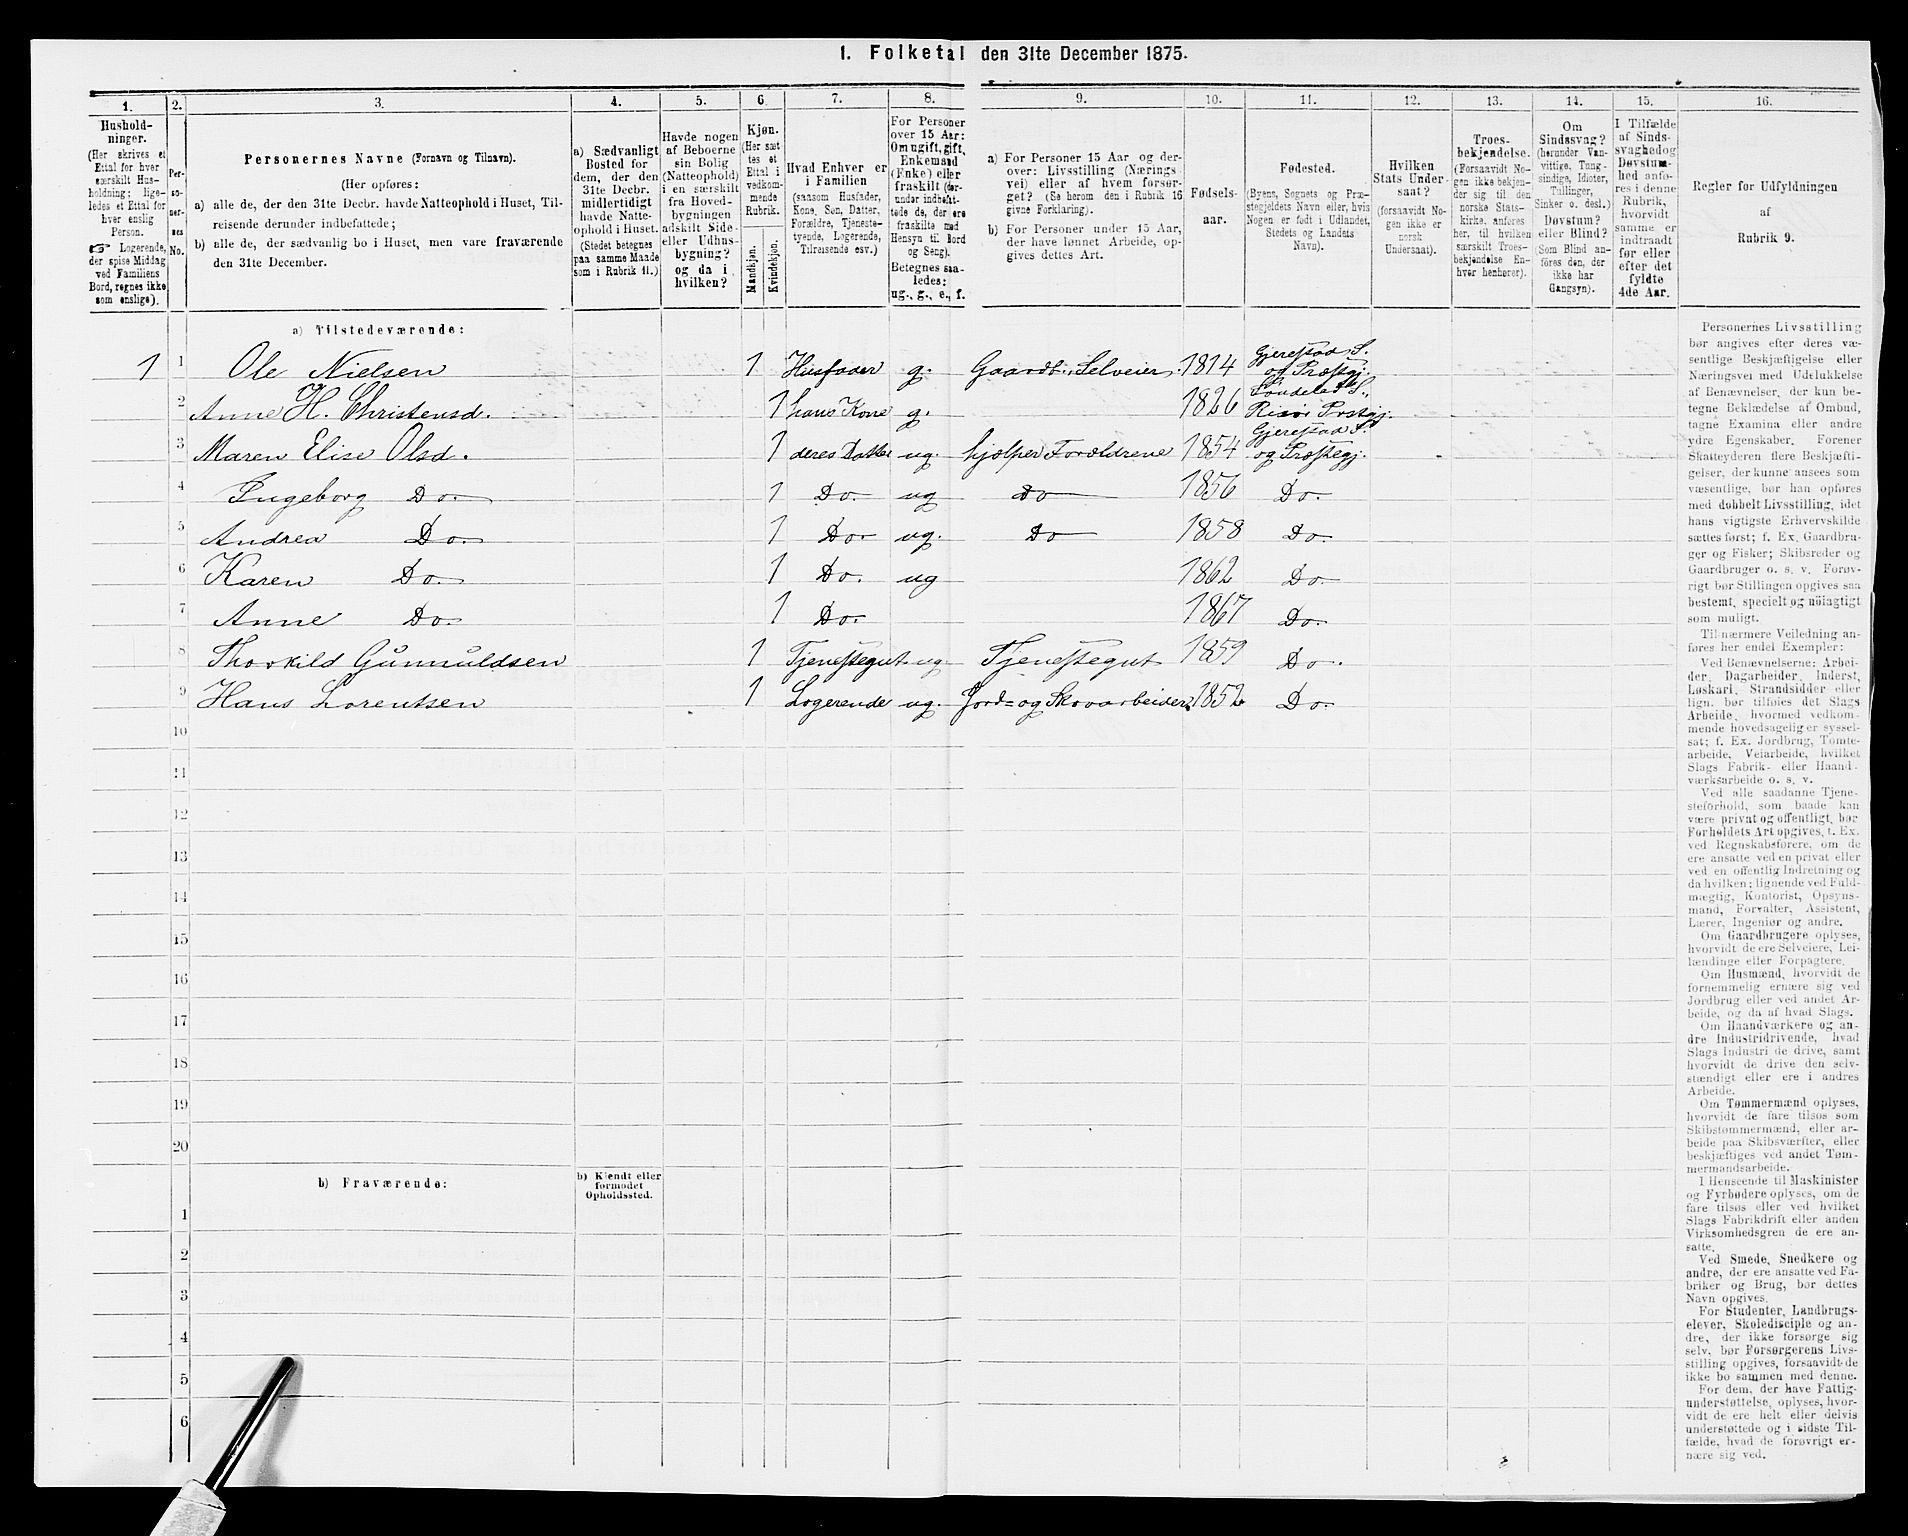 1. Folketal den 31te December 1875.
1. 2. 3. 4. 5. 6. 7. 8. 9. 10. 11. 12. 13. 14. 15. 16.
Hushold-
ninger.
(Her skrives et
Ettal for hver
særskilt Hus-
holdning; lige-
ledes et Ettal for
hver enslig
Person.
☞ Logerende,
der spise Middag
ved Familiens
Bord, regnes ikke
som enslige).
Per-
so-
ner-
nes
No.
Personernes Navne (Fornavn og Tilnavn).
(Her opføres:
a) alle de, der den 31te Decbr. havde Natteophold i Huset, Til-
reisende derunder indbefattede;
b) alle de, der sædvanlig bo i Huset, men vare fraværende
den 31te December.
a) Sædvanligt
Bosted for
dem, der den
31te Decbr.
midlertidigt
havde Natte-
ophold i Huset.
(Stedet betegnes
paa samme Maade
som i Rubrik 11.)
Havde nogen
af Beboerne
sin Bolig
(Natteophold)
i en særskilt
fra Hoved-
bygningen
adskilt Side-
eller Udhus-
bygning?
og da i
hvilken?
Kjøn.
(Her sæt
tes et
Ettal i
vedkom-
mende
Rubrik.
Mandkjøn.
Kvindekjøn.
Hvad Enhver er
i Familien
(saasom Husfader,
Kone, Søn, Datter,
Forældre, Tjeneste-
tyende, Logerende,
Tilreisende osv.)
For Personer
over 15 Aar:
Om ugift, gift,
Enkemand
(Enke) eller
fraskilt (der-
under indbefat-
tede de, der ere
fraskilte med
Hensyn til Bord
og Seng).
Betegnes saa-
ledes:
ug., g., e., f.
a) For Personer 15 Aar og der-
over: Livsstilling (Nærings
vei) eller af hvem forsør-
get? (Se herom den i Rubrik 16
givne Forklaring).
b) For Personer under 15 Aar,
der have lønnet Arbeide, op-
gives dettes Art.
Fødsels-
aar.
Fødested.
(Byens, Sognets og Præ-
stegjeldets Navn eller, hvis
Nogen er født i Udlandet,
Stedets og Landets
Navn).
Hvilken
Stats Under
saat?
(forsaavidt No-
gen ikke er
norsk
Undersaat).
Troes-
bekjendelse.
(Forsaavidt No-
gen ikke bekjen-
der sig til den
norske Stats-
kirke, anføres
her, til hvilken
særskilt Troes-
bekjendelse En-
hver henhører).
Om
Sindssvag?
(herunder Van-
vittige, Tung-
sindige, Idioter,
Tullinger,
Sinker o. desl.)
Døvstum?
eller Blind?
(Som Blind an-
føres den, der
ikke har
Gangsyn).
I Tilfælde
af Sinds-
svaghed og
Døvstum-
hed anfø-
res i denne
Rubrik,
hvorvidt
samme er
indtraadt
før eller
efter det
fyldte
4de Aar.
Regler for Udfyldningen
af
Rubrik 9.
a) Tilstedeværende:
1 1 Ole Nielsen 1 Husfader g. Gaardb., Selveier. 1814 Gjerestad S. og Præstgj.
2 Anne H. Christensd. 1 hans Kone g. 1826 Søndeled S., Risør Prstgj.
3 Maren Elise Olsd. 1 deres Datter ug. hjælper Forældrene 1854 Gjerestad S. og Præstegj.
4 Ingeborg Do. 1 Do. ug Do 1856 Do.
5 Andrea Do. 1 Do. ug. Do 1858 Do.
6 Karen Do. 1 Do. ug 1862 Do.
7 Anne Do. 1 Do. 1867 Do.
8 Thorkild Gunnuldsen 1 Tjenestegut ug. Tjenestegut 1859 Do.
9 Hans Lorentsen 1 Logerende ug. Jord- og Skovarbeider 1852 Do.
10
11
12
13
14
15
16
17
18
19
20
b) Fraværende:
b) Kjendt eller
formodet
Opholdssted.
1
2
3
4
5
6
Personernes Livsstilling
bør angives efter deres væ-
sentlige Beskjæftigelse eller
Næringsvei med Udelukkelse
af Benævnelser, der kun be-
tegne Beklædelse af Ombud,
tagne Examina eller andre
ydre Egenskaber. Forener
Skatteyderen flere Beskjæfti-
gelser, der kunne ansees som
væsentlige, bør han opføres
med dobbelt Livsstilling, idet
hans vigtigste Erhvervskilde
sættes først; f. Ex. Gaardbru-
ger og Fisker; Skibsreder og
Gaardbruger o. s. v. Forøv-
rigt bør Stillingen opgives saa
bestemt, specielt og nöiagtigt
som muligt.
Til nærmere Veiledning an-
føres her endel Exempler:
Ved Benævnelserne: Arbei-
der, Dagarbeider, Inderst,
Løskarl, Strandsidder eller
lign. bør tilføies det Slags
Arbeide, hvormed vedkom-
mende hovedsagelig er syssel-
sat; f. Ex. Jordbrug, Tömte-
arbeide, Veiarbeide, hvilket
Slags Fabrik- eller Haand-
værksarbeide o. s. v.
Ved alle saadanne Tjene-
steforhold, som baade kan
være privat og offentligt, bør
Forholdets Art opgives, t. Ex.
ved Regnskabsførere, om de
ere ansatte ved en privat eller
ved en offentlig Indretning og
da hvilken; lignende ved Fuld-
mægtig, Kontorist, Opsyns-
mand, Forvalter, Assistent,
Lærer, Ingeniør og andre.
Om Gaardbrugere oplyses,
hvorvidt de ere Selveiere, Lei-
lændinge eller Forpagtere.
Om Husmænd, hvorvidt de
fornemmelig ernære sig ved
Jordbrug eller ved andet Ar-
beide, og da af hvad Slags.
Om Haandværkere og an-
dre Industridrivende, hvad
Slags Industri de drive, samt
hvorvidt de drive den selv-
stændigt eller ere i andres
Arbeide.
Om Tømmermænd oplyses,
hvorvidt de fare tilsøs som
Skibstømmermænd, eller ar-
beide paa Skibsværfter, eller
beskjæftiges ved andet Tøm-
mermandsarbeide.
I Henseende til Maskinister
og Fyrbødere oplyses, om de
fare tilsøs eller ved hvilket
Slags Fabrikdrift eller anden
Virksomhedsgren de ere an-
satte.
Ved Smede, Snedkere og
andre, der ere ansatte ved Fa-
briker og Brug, bør dettes
Navn opgives.
For Studenter, Landbrugs-
elever, Skoledisciple og an-
dre, der ikke forsørge sig
selv, bør Forsørgerens Livs-
stilling opgives, forsaavidt de
ikke bo sammen med denne.
For dem, der have Fattig-
understøttelse, oplyses, hvor-
vidt de ere helt eller delvis
understøttede og i sidste Til-
fælde, hvad de forøvrigt er-
nære sig ved.